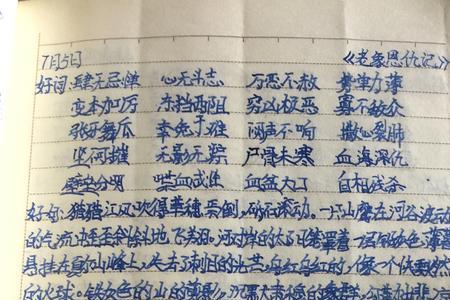 7月5日 《老象恩仇记》
好词:肆无忌惮 心无斗志 万恶不赦 势单力薄
变本加厉 左挡右阻 穷凶极恶 寡不敌众
张牙舞爪 幸免于难 闷声不响 撕心裂肺
无影无踪 尸骨未寒 血海深仇
壁垒分明 喋血成性 血盆大口 自相残杀
好句:猎猎江风,吹得草穗丢倒,砂石滚动。一只山鹰在河谷
的气流中歪歪斜斜地飞翔。河对岸的 笼罩着一层铅灰色
悬挂在 山峰上,失去了刺目的光芒,乌红乌红的,像一个快要
的火球。铅灰色的山的